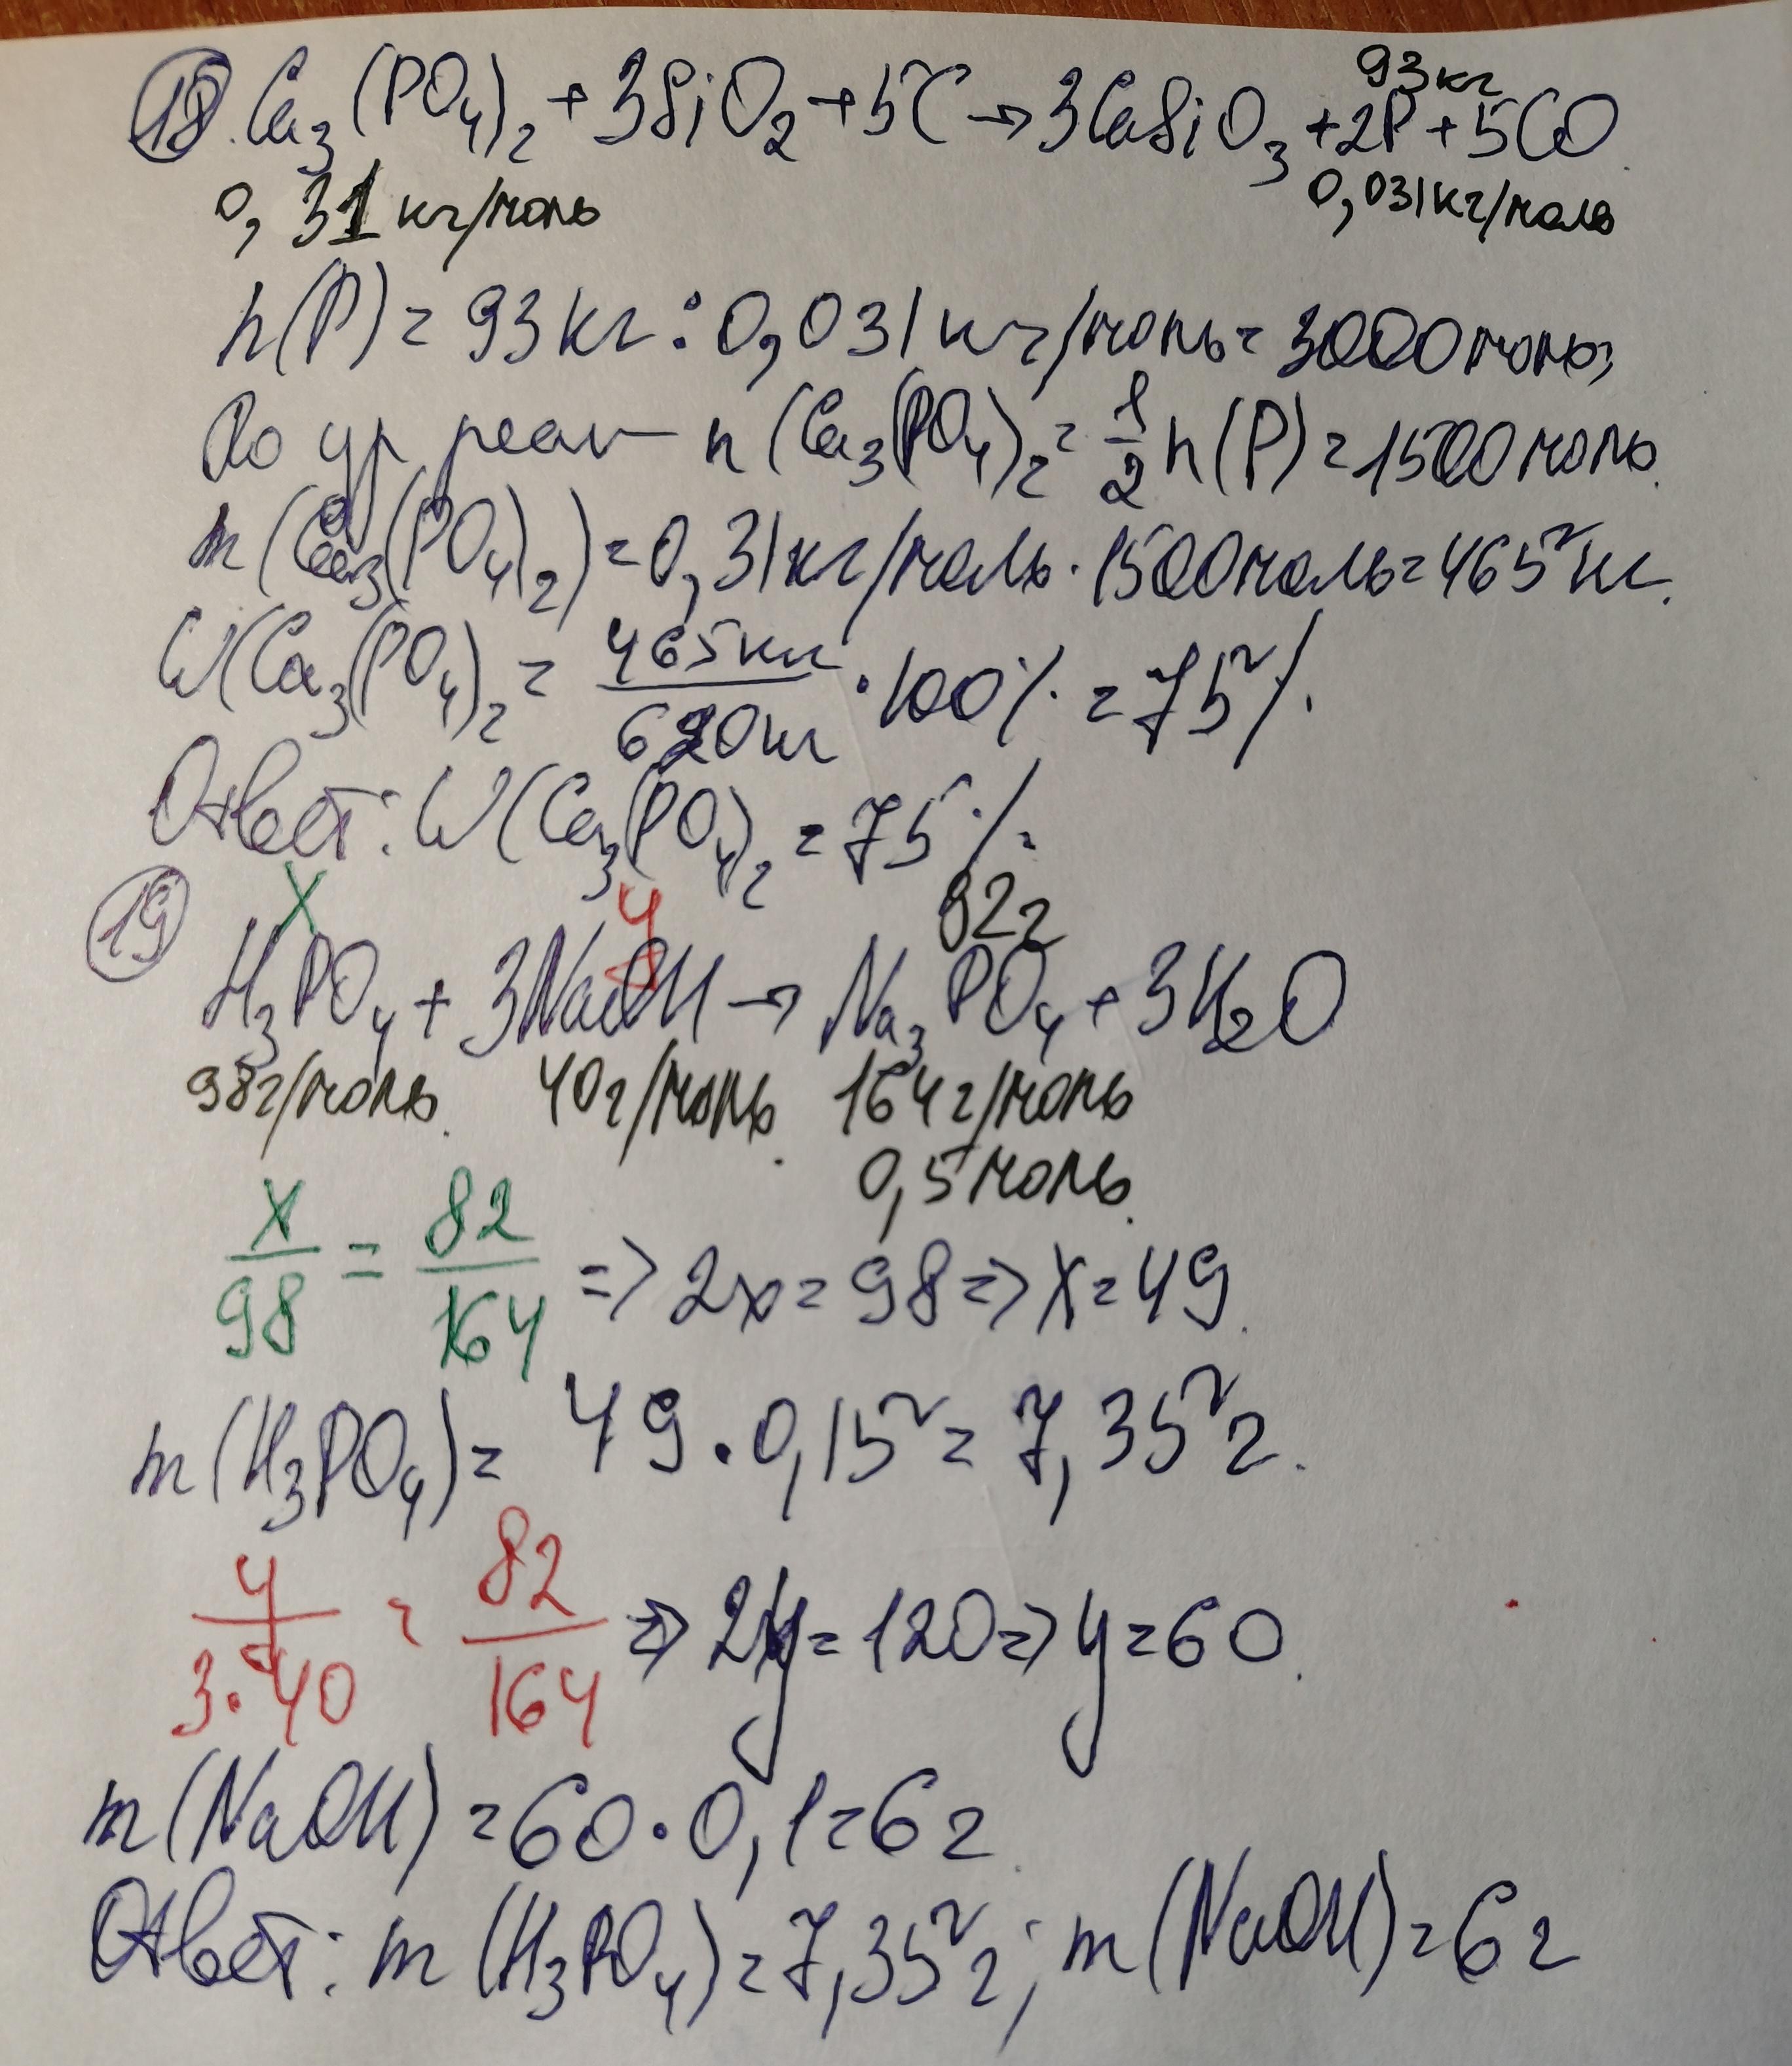 93кг
18. Ca₃(PO₄)₂ + 3SiO₂ + 5C → 3CaSiO₃ + 2P + 5CO
0,31 кг/моль 0,031кг/моль
n(P) = 93кг : 0,031 кг/моль = 3000 моль;
По ур реак n (Ca₃(PO₄)₂ = 1/2 n(P) = 1500 моль.
m (Ca₃(PO₄)₂) = 0,31кг/моль · 1500моль = 465 кг.
W(Ca₃(PO₄)₂ = 465кг/620кг · 100% = 75%
Ответ: W(Ca₃(PO₄)₂ = 75%
X y 82г
19 H₃PO₄ + 3NaOH → Na₃PO₄ + 3H₂O
98г/моль. 40г/моль. 164г/моль
0,5моль.
X/98 = 82/164 => 2x = 98 => x = 49.
m(H₃PO₄) = 49 · 0,15 = 7,35 г.
y/3·40 = 82/164 => 2y = 120 => y = 60.
m(NaOH) = 60 · 0,1 = 6г.
Ответ: m (H₃PO₄) = 7,35 г; m(NaOH) = 6г